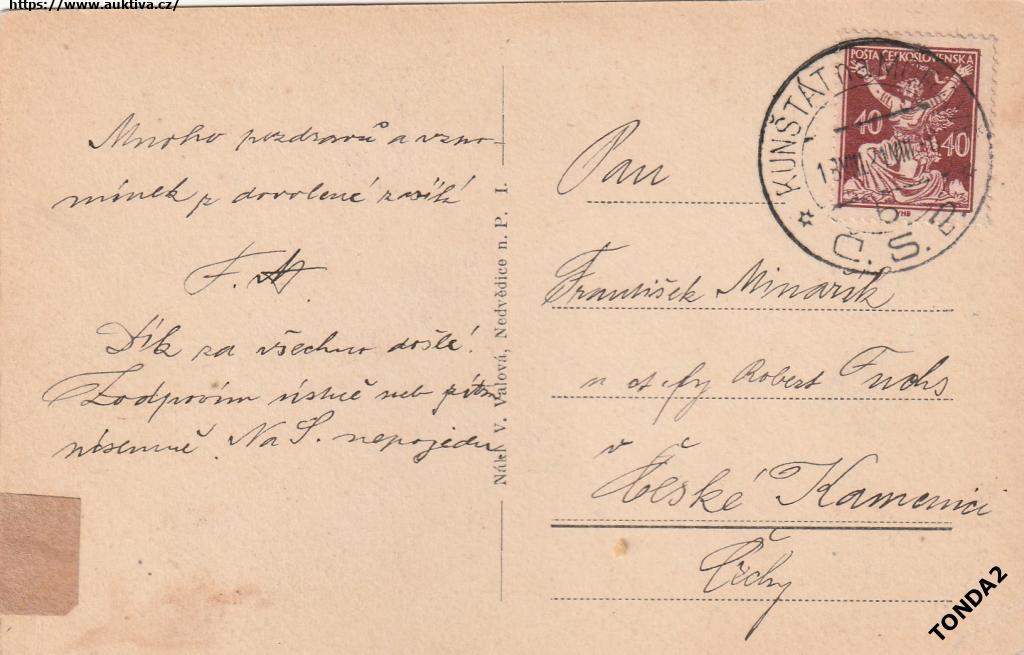 https://www.auktiva.cz/
Mnoho pozdravů a vzpo-
mínek z dovolené zasílá
F. M.
Dík za všechno došlé!
Zodpovím ústně neb
písemně. Na S. nepojedu
Nákl. V. Valová, Nedvědice n. P. I.
POŠTA ČESKOSLOVENSKA
40 40
KUNŠTÁT na Mor.
Č. S. P.
Pan
František Minařík
u Robert Fuchs
v
České Kamenici
Čechy
TONDA2